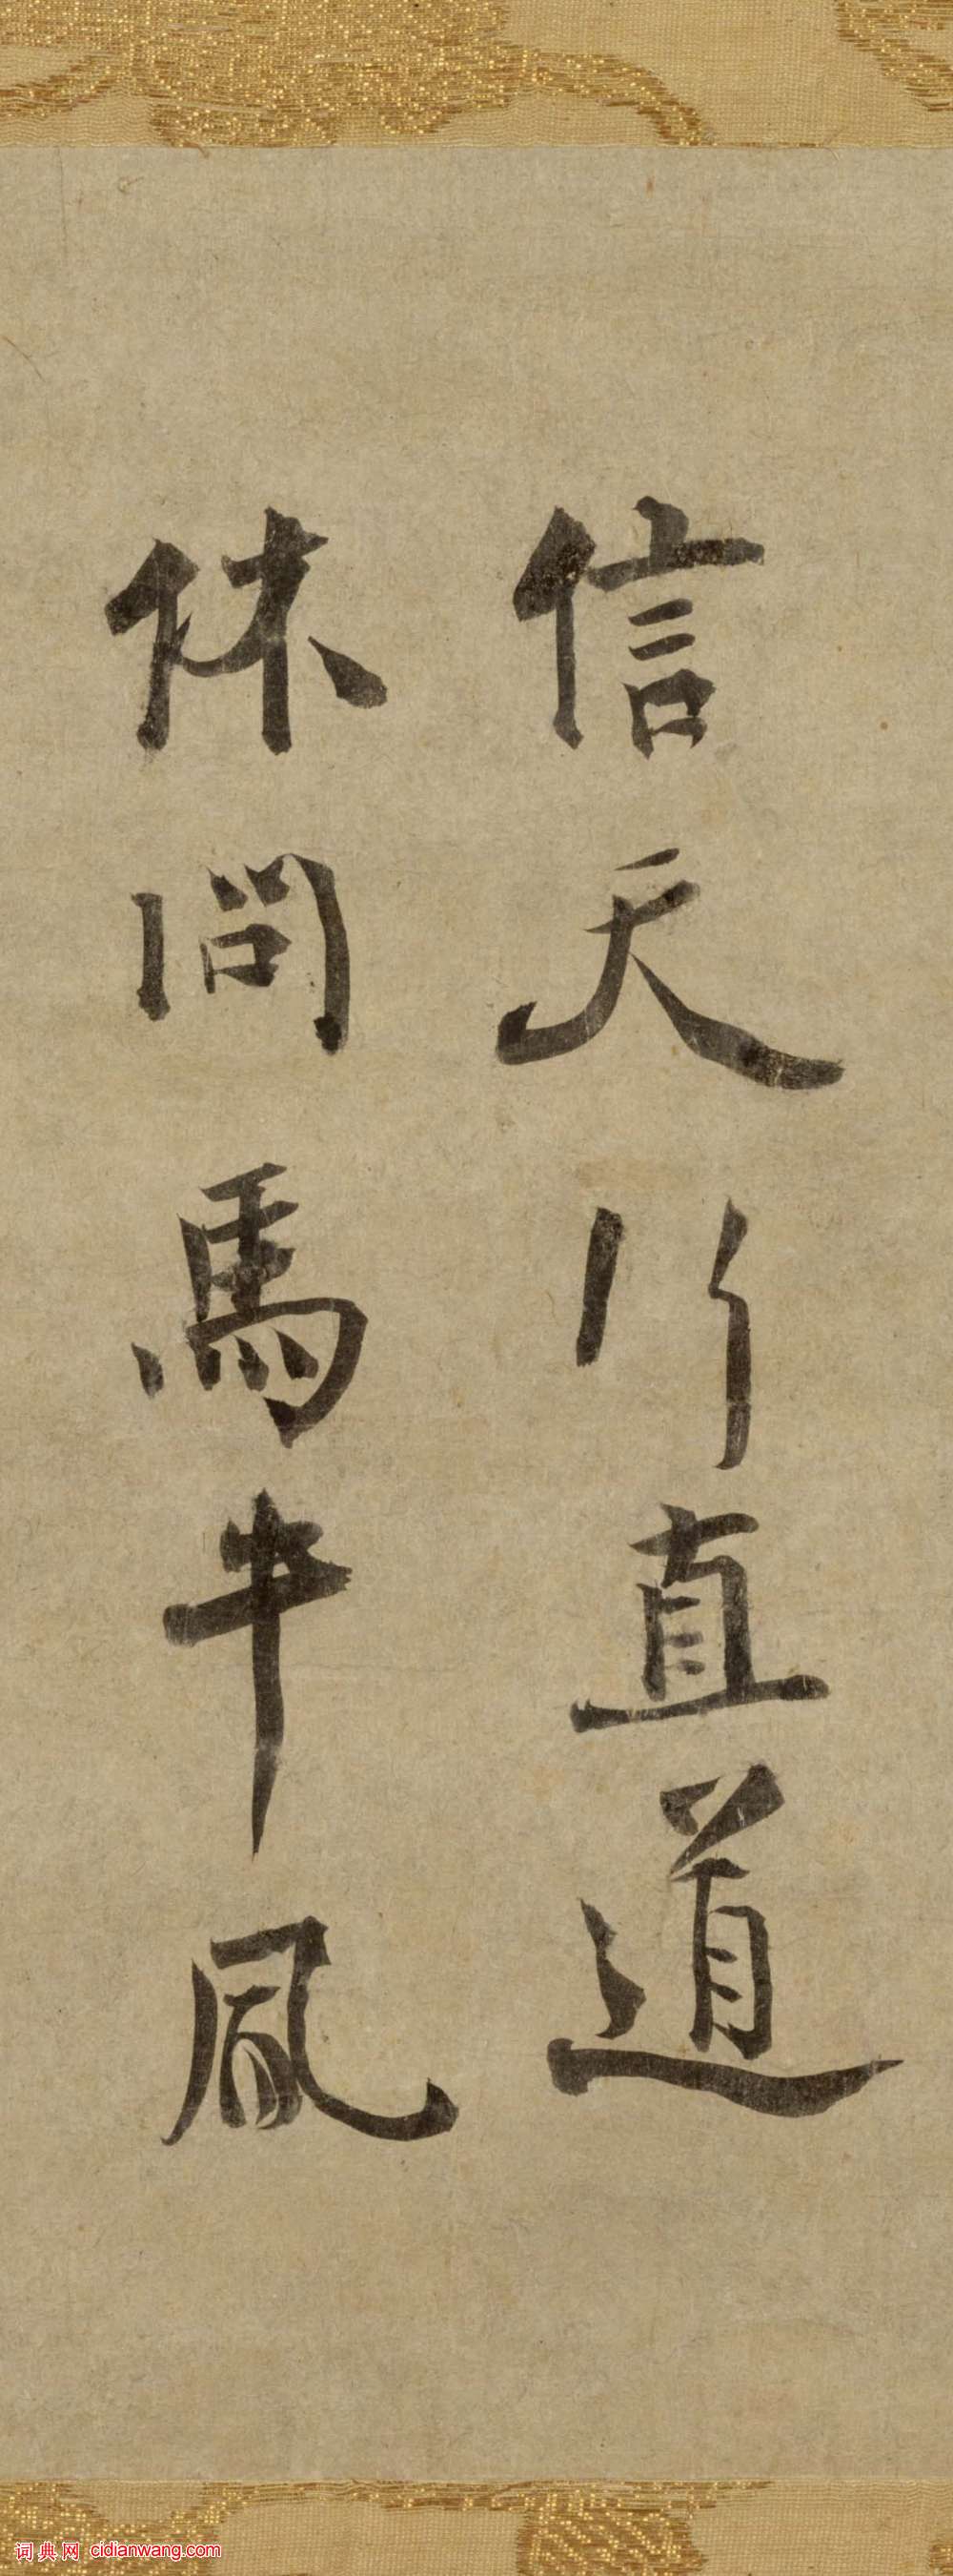 信天行直道
休問馬牛風
词典网 cidianwang.com